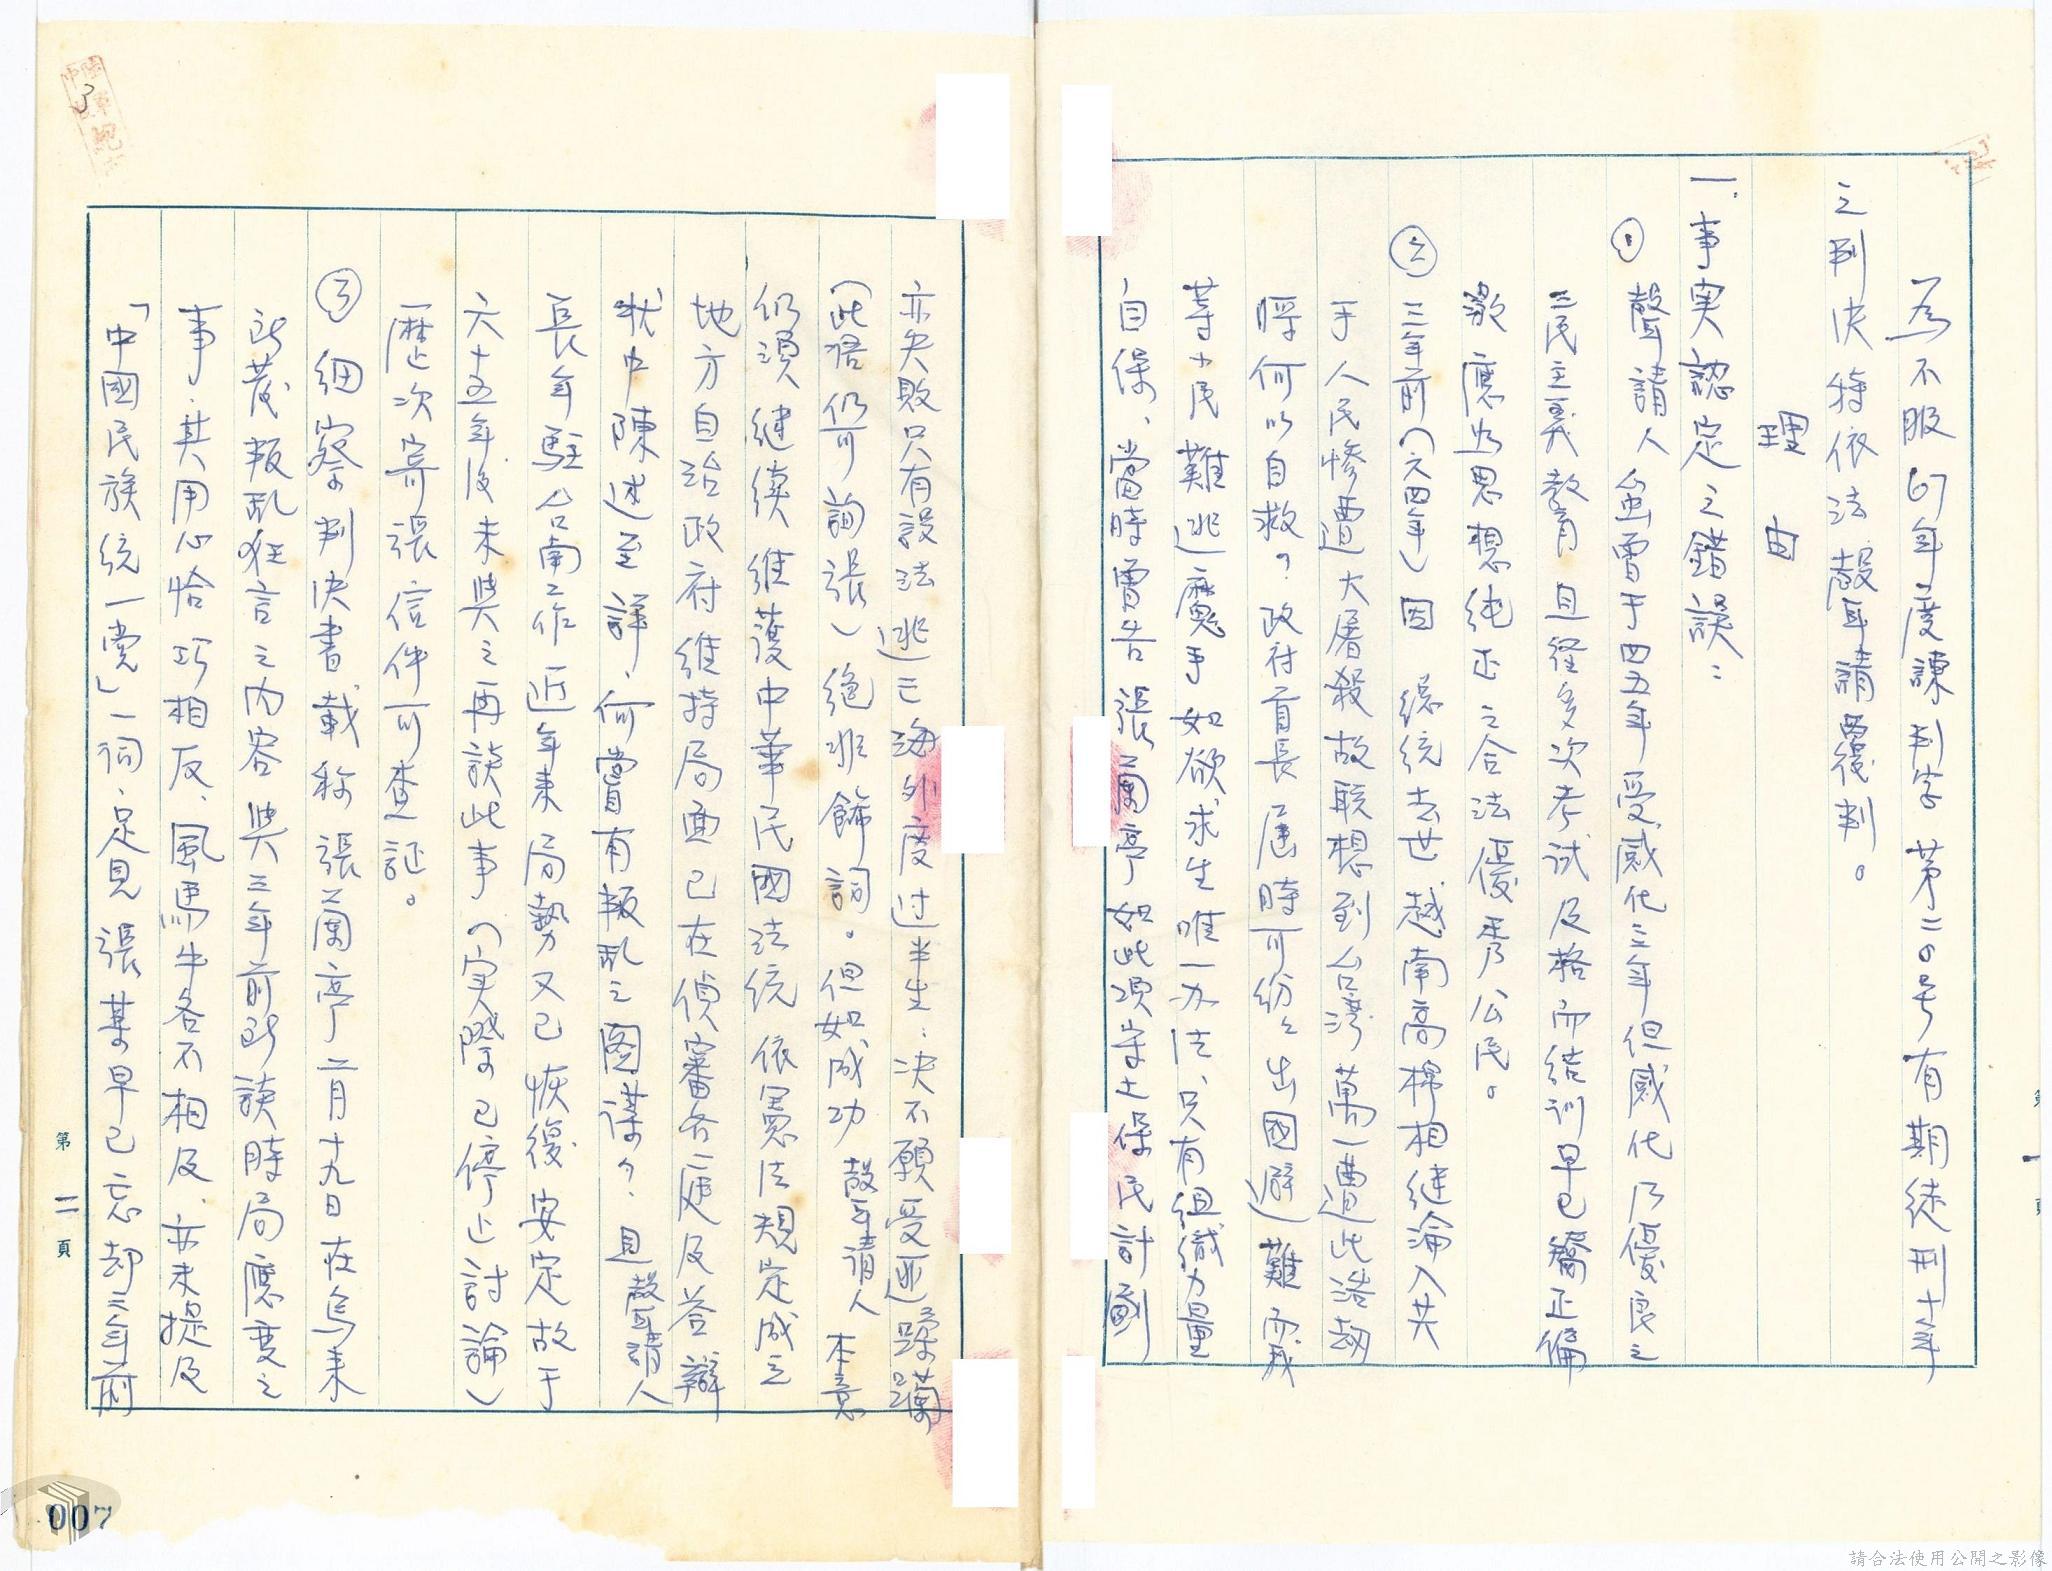 為不服67年度諫判字第二0号有期徒刑十年
之判决特依法聲請覆判。
理由
一.事实認定之錯誤：
① 聲請人 曾于四五年受感化三年但感化乃優良之
三民主義教育且経多次考試及格而結訓早已矯正偏
歇應為思想純正之合法優秀公民。
② 三年前（六四年）因 總統去世越南高棉相継淪入共
于人民惨遭大屠殺故联想到台湾萬一遭此浩劫
時何以自救？政府首長屆時可紛々出國避難而我
等小民難逃魔手如欲求生唯一办法、只有組織力量
自保、當時曾告張蘭亭如此項守土保民計劃
第一頁
亦失敗只有設法逃亡海外度过半生：决不願受匪蹂躪
（此语仍可詢張）絶非飾詞。但如成功聲請人本意
仍須継续維護中華民國法統依憲法規定成立
地方自治政府維持局面已在偵審各庭及答辯
狀中陳述至詳、何嘗有叛乱之图谋？、且聲請人
長年駐台南工作近年来局勢又已恢復安定故于
六十五年後未與之再談此事（实際已停止討論）
歷次寄張信件可查証。
③ 細察判决書載称張蘭亭二月十九日在烏来
所發叛乱狂言之内容與三年前所談時局應变之
事、其用心恰巧相反、風馬牛各不相及、亦未提及
「中國民族統一党」一詞、足見張某早已忘却三年前
第二頁
007
請合法使用公開之影像